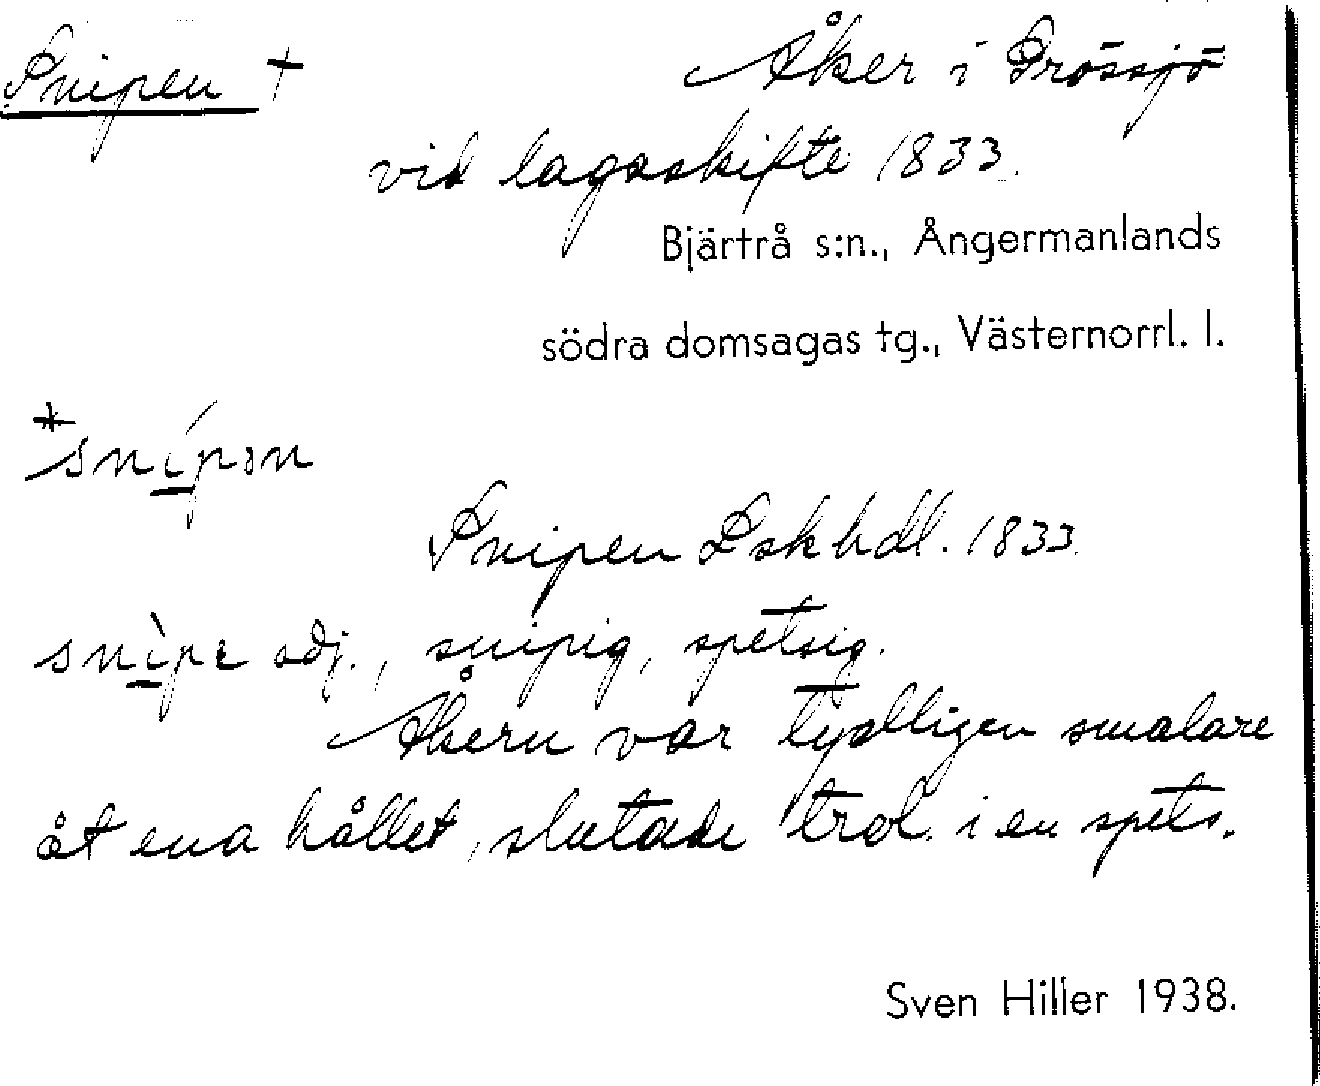 Snipen † Åker i Prössjö
vid lagaskifte 1833.
Bjärtrå s:n., Ångermanlands
södra domsagas tg., Västernorrl. l.
*snípən
Snipen Lskhdl. 1833.
snìpɛ adj., snipig, spetsig.
Åkern var tydligen smalare
åt ena hållet, slutade trol. i en spets.
Sven Hiller 1938.